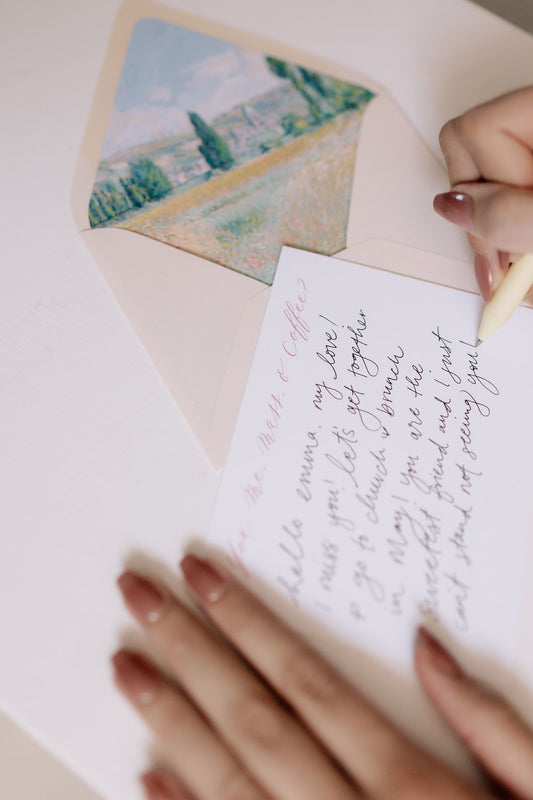 You. Me. Mass. & Coffee?
hello emma. my love!
I miss you! let's get together
& go to church & brunch
in May! you are the
sweetest friend and I just
can't stand not seeing you!